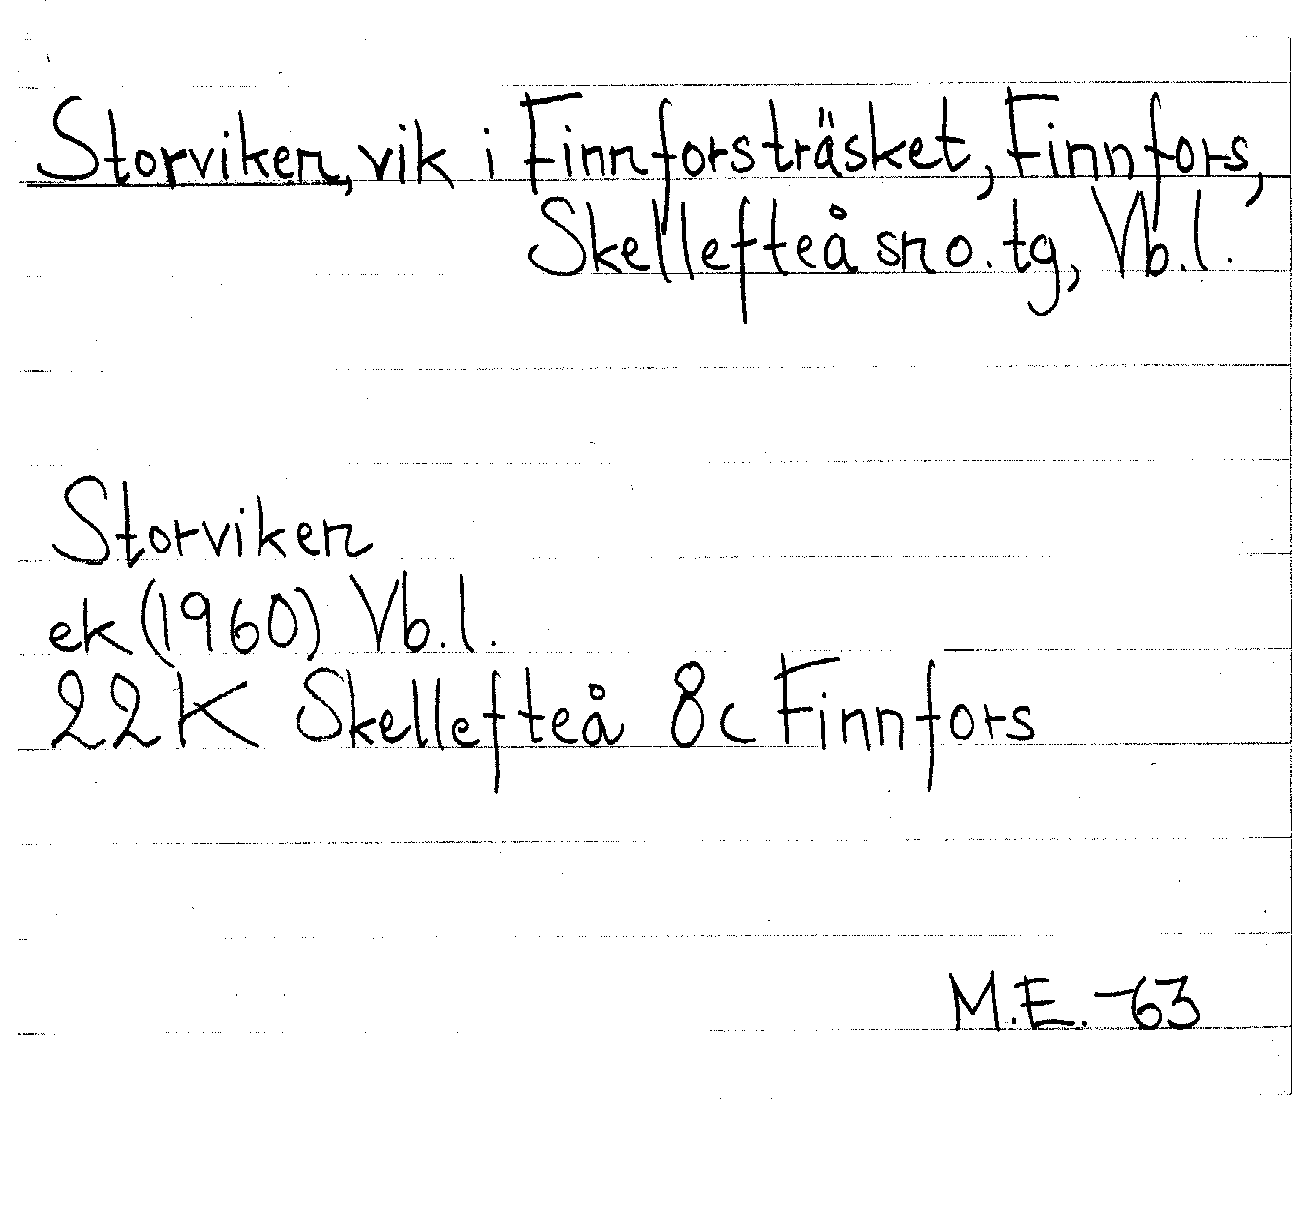 Storviken, vik i Finnforsträsket, Finnfors,
Skellefteå sn o. tg, Vb.l.
Storviken
ek (1960) Vb.l.
22K Skellefteå 8c Finnfors
M.E. -63